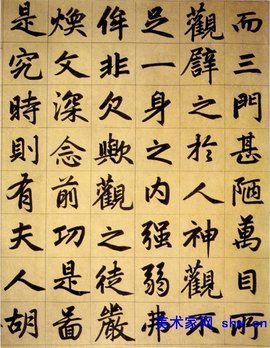 而三門甚陋萬目所
觀譬之於人神觀不
足一身之内强弱弗
侔非欠歟觀之徒嚴
煥文深念前功是啚
是究時則有夫人胡
美术家网